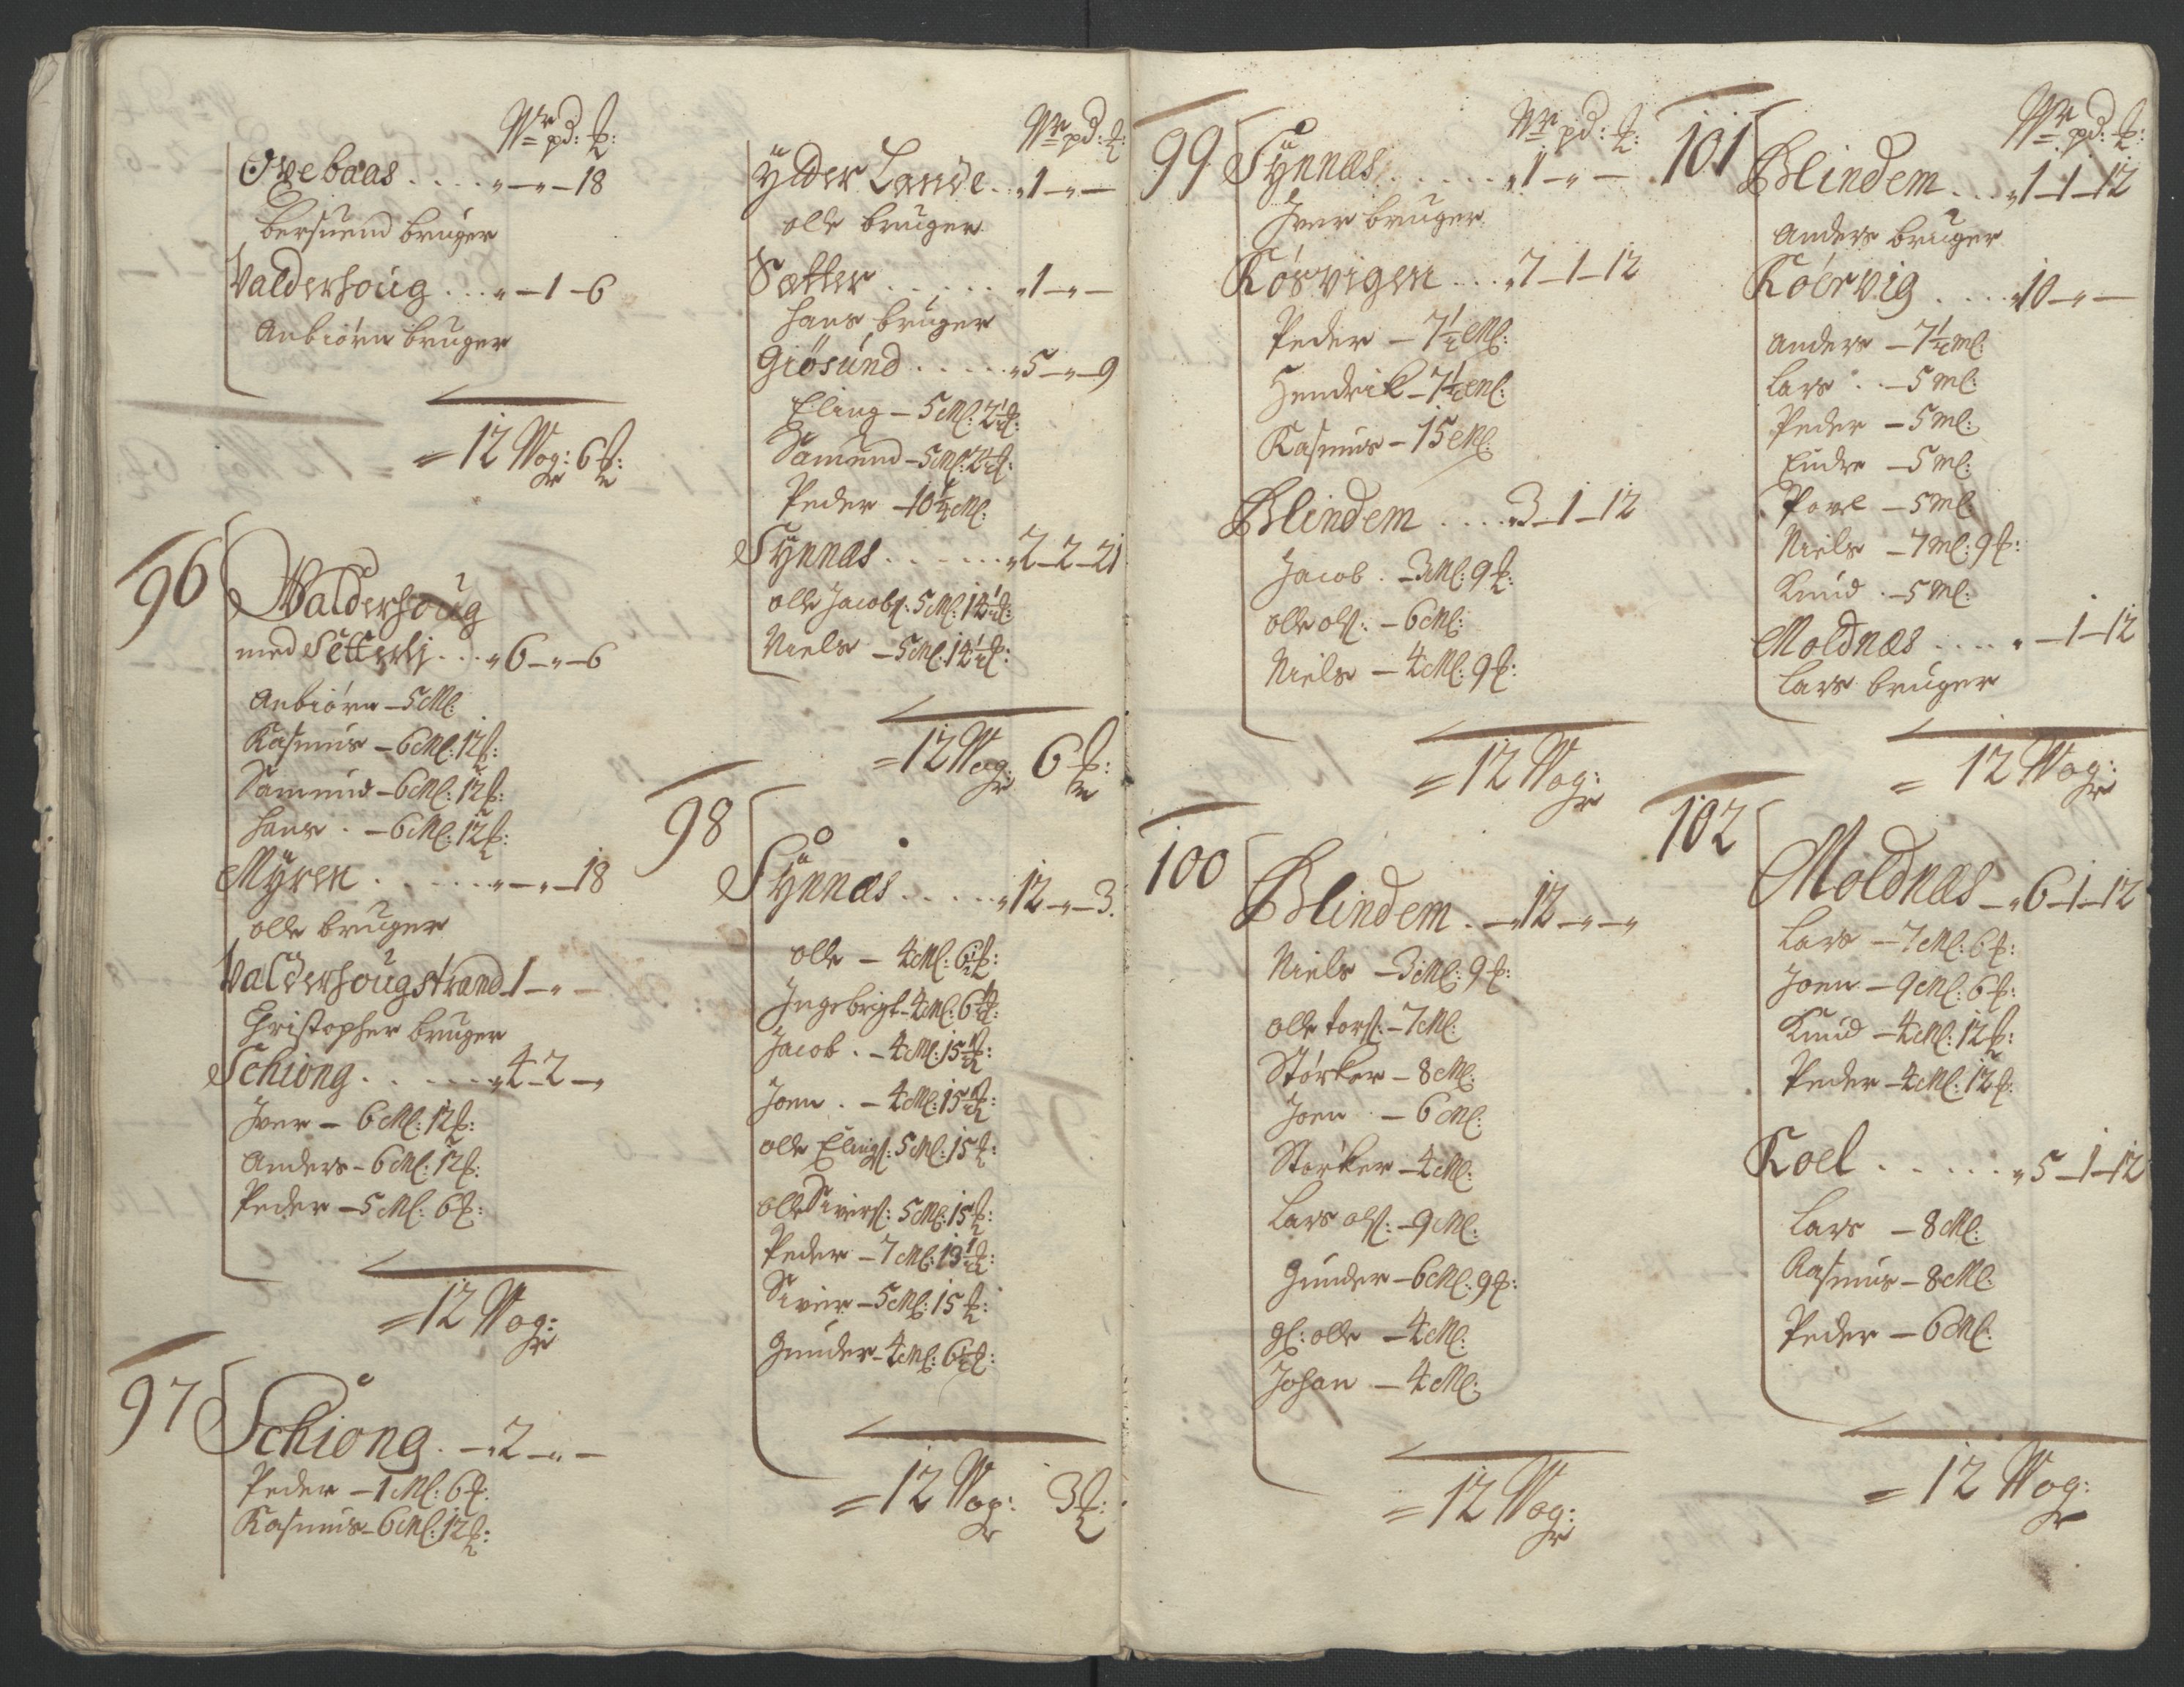 Wr pd: ℔:
Ovebaas .... „—„—18
Bersuend bruger
Valderhoug ... „—1—6
Anbiørn bruger
= 12 Wog: 6 ℔:
96
Walderhoug
med Setterlj ... „6—„—6
Anbiørn — 5 Ml:
Rasmus — 6 Ml: 12 ℔:
Samund — 6 Ml: 12 ℔:
Hans . — 6 Ml: 12 ℔:
Mÿren ...... „—„—18
olle bruger
Valderhougstrand 1—„—
Christopher bruger
Schiong ...... „4—2—„
Iver — 6 Ml: 12 ℔:
Anders — 6 Ml: 12 ℔:
Peder — 5 Ml: 6 ℔:
= 12 Wog:
97
Schiong . — „2—„—
Peder — 1 Ml: 6 ℔:
Rasmus — 6 Ml: 12 ℔:
Wr pd: ℔:
Ÿtter Lande .. „1—„—
olle bruger
Sætter ...... „1—„—
Hans bruger
Giøsund ..... „5—„—9
Eling — 5 Ml: 2½ ℔:
Samund — 5 Ml: 2½ ℔:
Peder — 10½ Ml:
Sÿnnæs ...... „2—2—21
olle Jacobs: 5 Ml: 14½ ℔:
Niels — 5 Ml: 14½ ℔:
= 12 Wog: 6 ℔:
98
Sÿnnæs ..... „12—„—3.
olle — 4 Ml: 6½ ℔:
Ingebrigt — 4 Ml: 6½ ℔:
Jacob . — 4 Ml: 15½ ℔:
Joen . — 4 Ml: 15½ ℔:
olle Elings: 5 Ml: 15 ℔:
olle Sivers: 5 Ml: 15 ℔:
Peder — 7 Ml: 13½ ℔:
Siver — 5 Ml: 15 ℔:
Gunder — 4 Ml: 6½ ℔:
= 12 Wog: 3 ℔:
Wr pd: ℔:
99
Sÿnnæs ..... „1—„—
Iver bruger
Kørvigen .... „7—1—12
Peder — 7½ Ml:
Hendrik — 7½ Ml:
Rasmus — 15 Ml:
Blindem .... „3—1—12
Jacob . — 3 Ml: 9 ℔:
olle ols: — 6 Ml:
Niels — 4 Ml: 9 ℔:
= 12 Wog:
100
Blindem . — „12—„—„
Niels — 3 Ml: 9 ℔:
olle tors: — 7 Ml:
Størker — 8 Ml:
Joen — 6 Ml:
Størker — 4 Ml:
Lars ols: — 9 Ml:
Gunder — 6 Ml: 9 ℔:
gl: olle — 4 Ml:
Johan — 4 Ml:
= 12 Wog:
Wr pd: ℔:
101
Blindem ... „1—1—12
Anders bruger
Kóervig .... „10—„—
Anders — 7½ Ml:
Lars . . — 5 Ml:
Peder — 5 Ml:
Endre — 5 Ml:
Povel — 5 Ml:
Niels — 7 Ml: 9 ℔:
Knud . — 5 Ml:
Moldnæs .... „—1—12
Lars bruger
= 12 Wog:
102
Moldnæs — „6—1—12
Lars — 7 Ml: 6 ℔:
Joen — 9 Ml: 6 ℔:
Knud — 4 Ml: 12 ℔:
Peder — 4 Ml: 12 ℔:
Roel ...... „5—1—12
Lars — 8 Ml:
Rasmus — 8 Ml:
Peder — 6 Ml:
= 12 Wog: